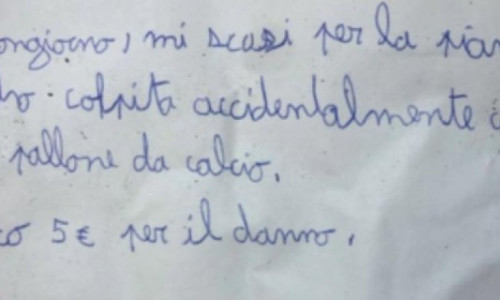 ongiorno, mi scusi per la pian
ho colpita accidentalmente c
pallone da calcio.
co 5€ per il danno.